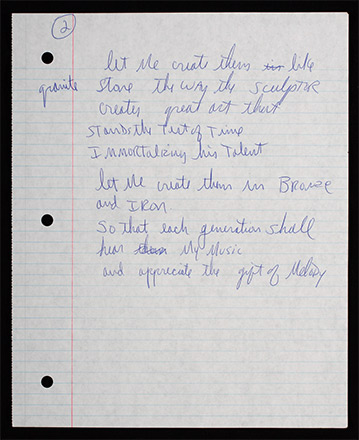 2
let me create them in like
granite stone the way the sculptor
creates great art that
stands the test of Time
Immortalizing his Talent
let me create them in Bronze
and IRON.
So that each generation shall
hear them My Music
and appreciate the gift of Melody